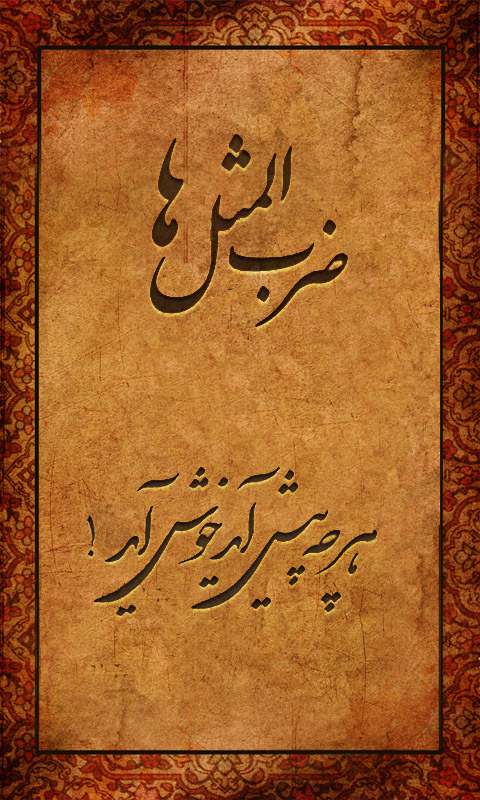 ضرب المثل ها
هر چه پیش آید خوش آید !